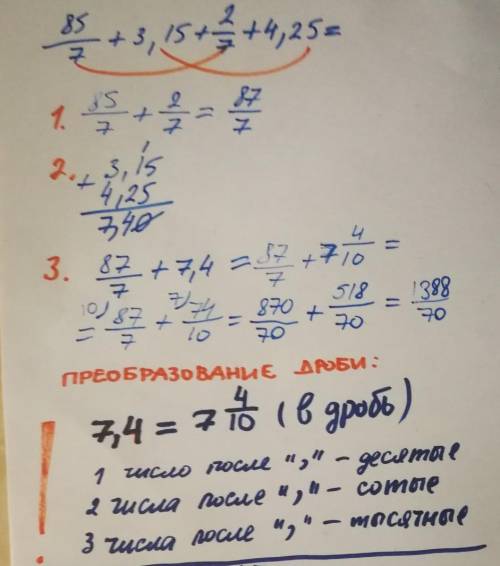 85/7 + 3,15 + 2/7 + 4,25 =
1. 85/7 + 2/7 = 87/7
2. + 3,15
4,25
7,40
3. 87/7 + 7,4 = 87/7 + 7 4/10 =
= 10) 87/7 + 7) 74/10 = 870/70 + 518/70 = 1388/70
ПРЕОБРАЗОВАНИЕ ДРОБИ:
! 7,4 = 7 4/10 (в дробь)
1 число после "," - десятые
2 числа после "," - сотые
3 числа после "," - тысячные